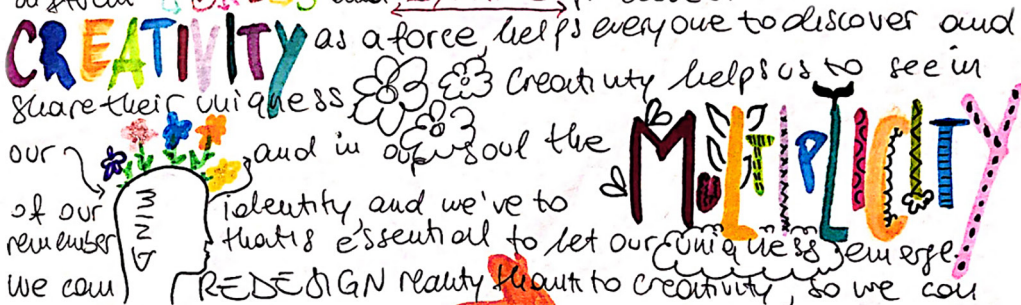 and
CREATIVITY as a force, helps everyone to discover and
share their uniqness Creativity helps us to see in
our MIND and in our soul the MULTIPLICITY
of our identity, and we've to
remember that is essential to let our uniqness emerge.
we can REDESIGN reality thank to creativity, so we can